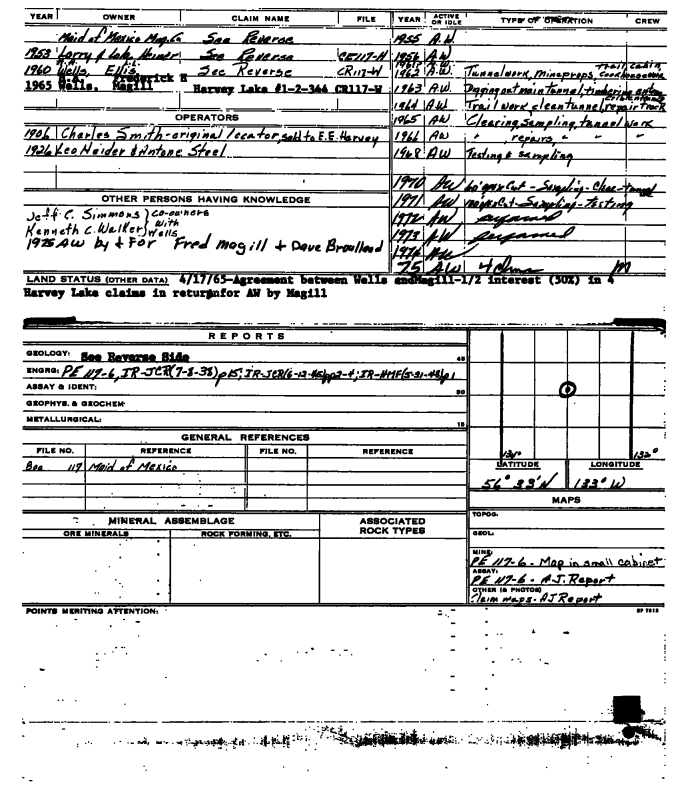 YEAR OWNER CLAIM NAME FILE
Maid of Mexico Mng. Co See Reverse
1953 Larry & Lake Heimer See Reverse CE117-H
1960 Wells, Ellis See Reverse CR117-W
1965 Wells, Magill Frederick Harvey Lake #1-2-3&4 CR117-W
OPERATORS
1906 Charles Smith-original locator, sold to E.E. Harvey
1926 Leo Heider & Antone Steel
OTHER PERSONS HAVING KNOWLEDGE
Jeff C. Simmons } co-owners
Kenneth C. Walker } with Wells
1975 AW by & For Fred Magill + Dave
YEAR ACTIVE OR IDLE TYPE OF OPERATION CREW
1955 A.W.
1956 A.W
1962 A.W. Tunnelwork, mineprops, trail, cabin,
1963 A.W Digging out main tunnel, timbering
1964 A.W. Trail work clean tunnel, repair track
1965 AW Clearing, Sampling, tunnel work
1966 AW " repairs, " "
1968 AW Testing & sampling
1970 AW Cut - Sampling - Clear tunnel
1971 AW Cut - Sampling - Testing
1972 AW performed
1973 AW performed
1974 AW
75 AW 4 clms M
LAND STATUS (OTHER DATA) 4/17/65-Agreement between Wells andMagill-1/2 interest (50%) in 4
Harvey Lake claims in returnfor AW by Magill
REPORTS
GEOLOGY: See Reverse Side 45
ENGRG: PE 117-6, IR-JCR(7-8-38)p15; IR-JCR(6-12-45)pp2-4; IR-HMF(5-31-48)p1
ASSAY & IDENT: 30
GEOPHYS. & GEOCHEM:
METALLURGICAL: 15
GENERAL REFERENCES
FILE NO. REFERENCE FILE NO. REFERENCE
117 Maid of Mexico
MINERAL ASSEMBLAGE
ORE MINERALS ROCK FORMING, ETC.
ASSOCIATED ROCK TYPES
134° 132°
LATITUDE LONGITUDE
56° 33' N 133° W
MAPS
TOPOG:
GEOL:
MINE:
PE 117-6 - Map in small cabinet
ASSAY:
PE 117-6 - A.J. Report
OTHER (& PHOTOS)
Claim maps - AJ Report
POINTS MERITING ATTENTION: